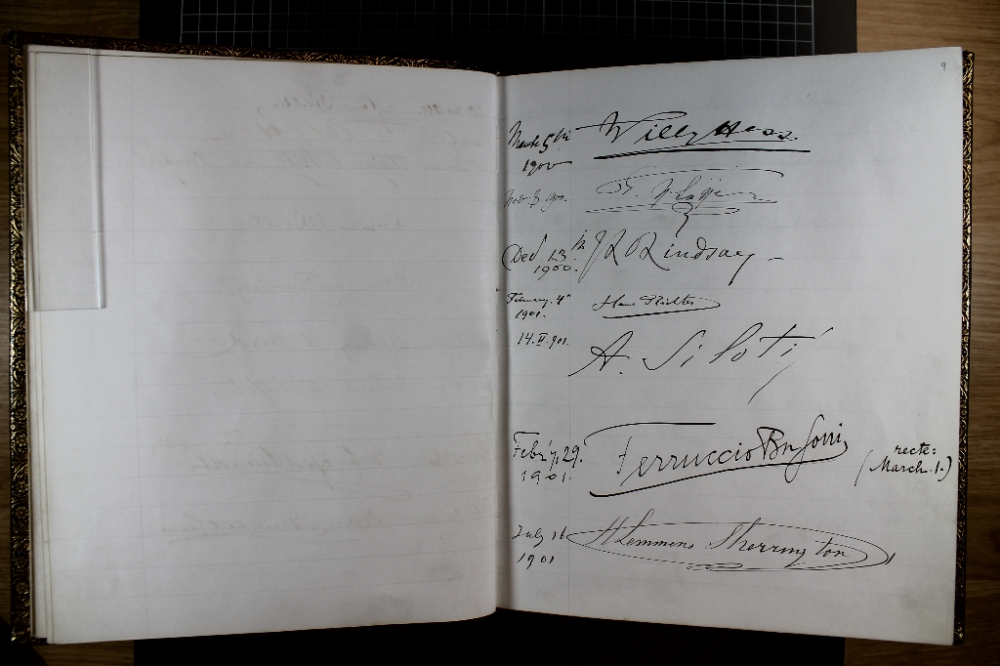 9
March 5th Willy Hess.
1900
Nov. 3. 1900.
Dec 13th 1900. Lindsay
February. 4th 1901. Hans Richter
14. II. 901. A. Siloti
Feb'ry. 29. 1901. Ferruccio Busoni (recte: March. 1.)
July 1901 H Lemmens Sherrington